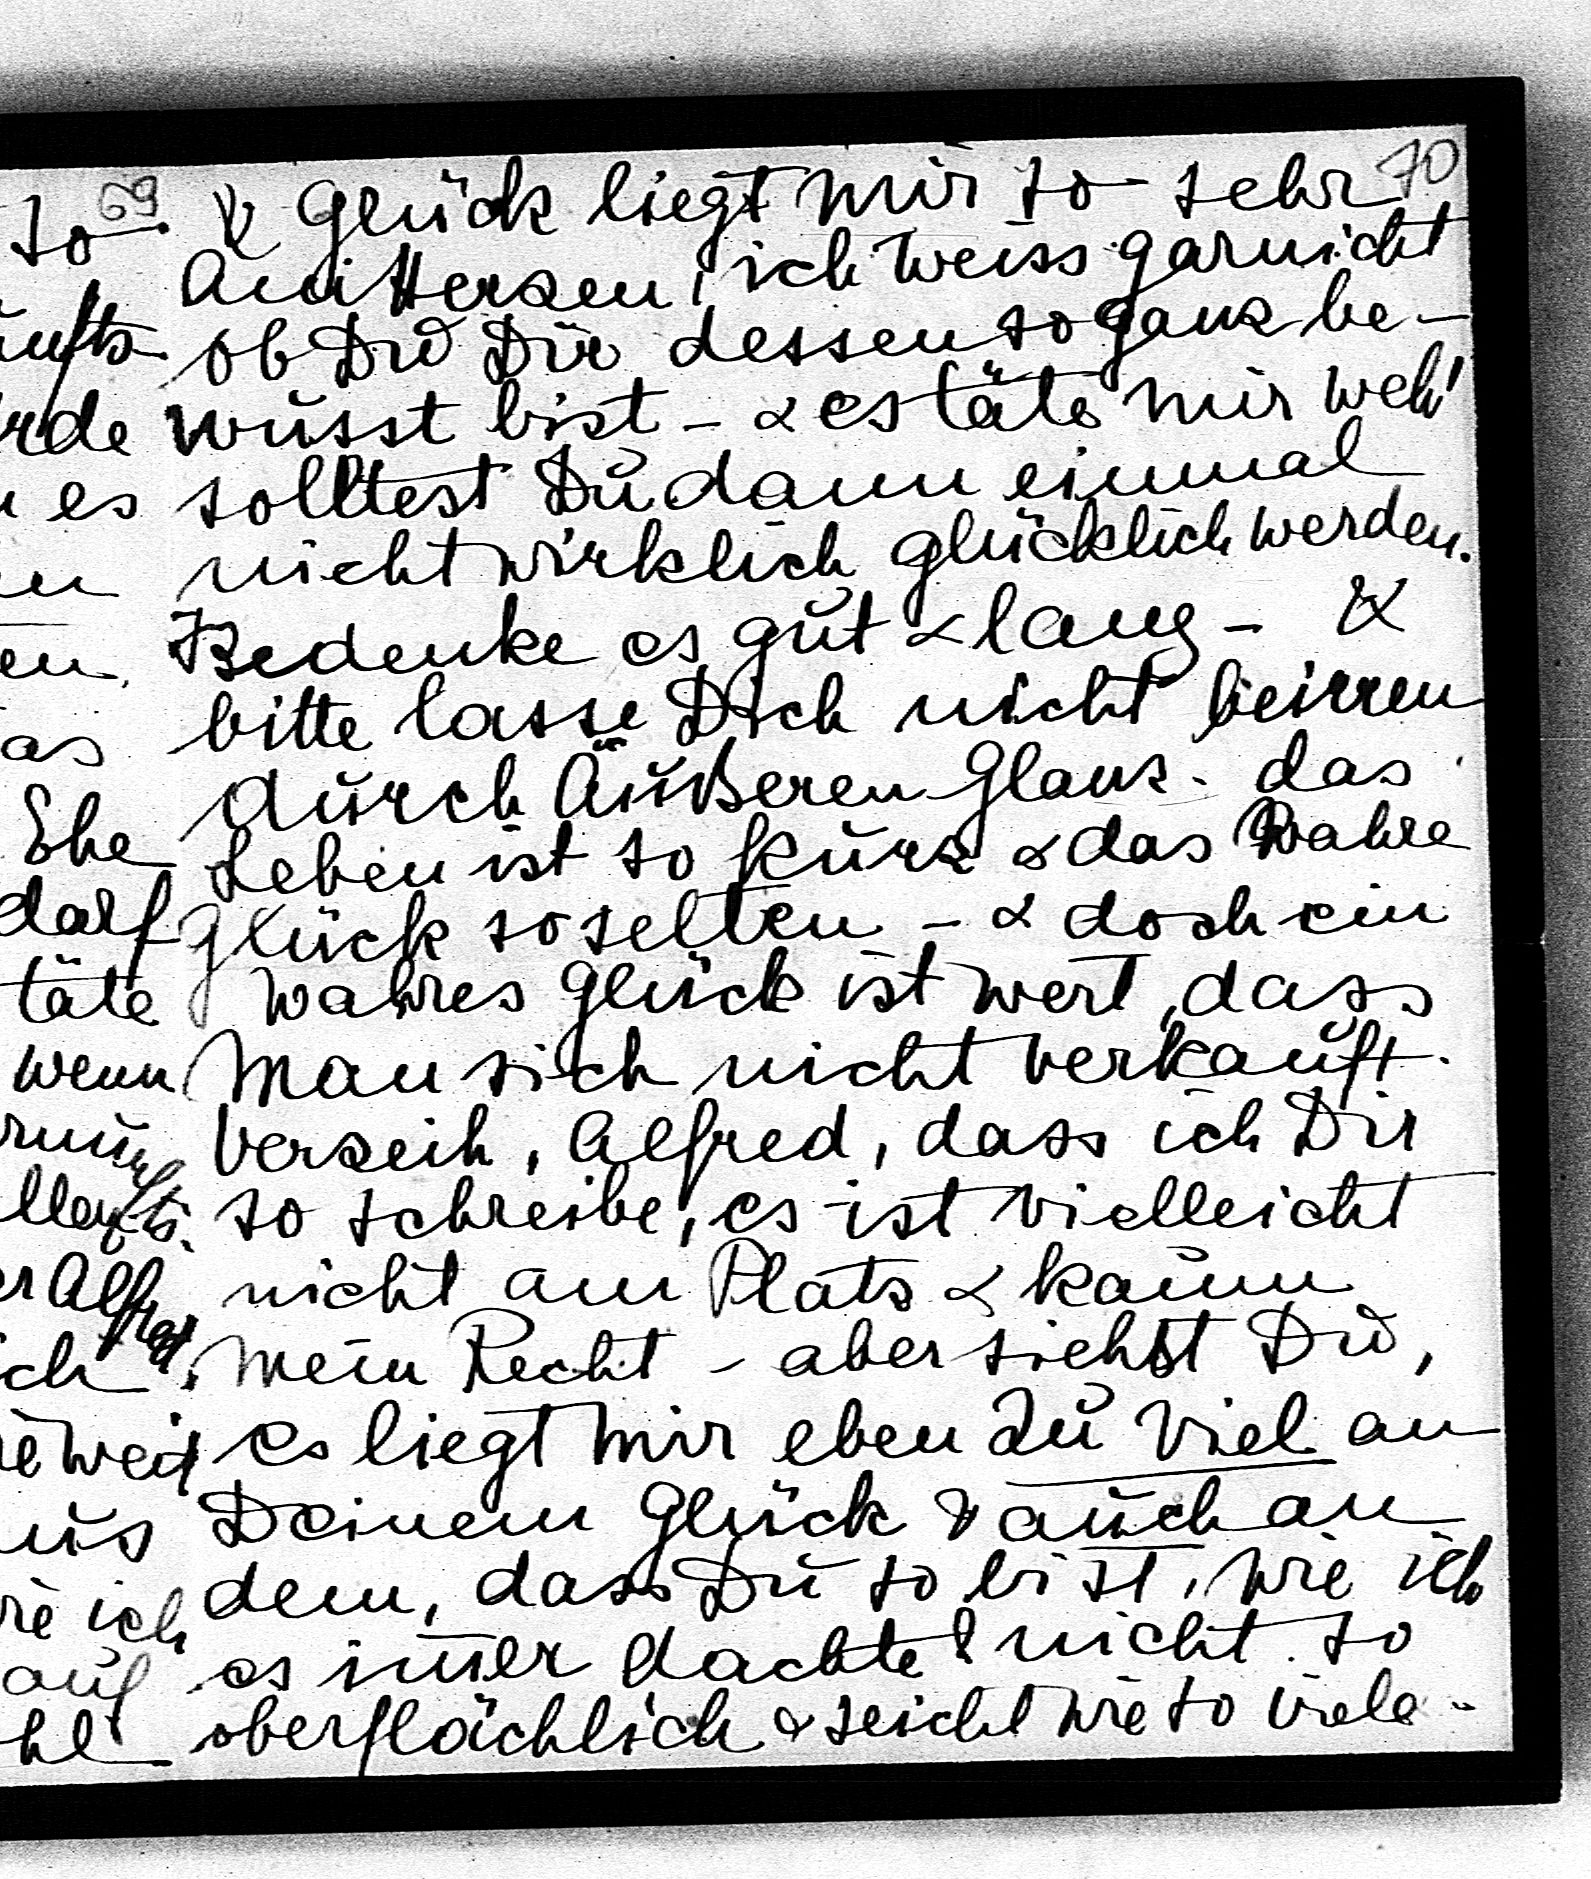 69
so
unfts
rde
es
en
en,
as
Ehe
darf
täte
wenn
er Alfred
ich
weit
us
ie ich
auf
hl
70
& Glück liegt mir so sehr
am Herzen, ich weiss garnicht
ob Du Dir dessen so ganz be-
wusst bist - & es täte mir weh!
solltest Du dann einmal
nicht wirklich glücklich werden.
Bedenke es gut & lang - &
bitte lasse Dich nicht beirren
durch Äußeren Glanz. das
Leben ist so kurz & das wahre
Glück so selten - & doch ein
wahres Glück ist wert, dass
man sich nicht verkauft.
Verzeih, Alfred, dass ich Dir
so schreibe, es ist vielleicht
nicht am Platz & kaum
mein Recht - aber siehst Du,
es liegt mir eben zu viel an
Deinem Glück & auch an
dem, dass Du so bist, wie ich
es im̅er dachte & nicht so
oberflächlich & seicht wie so viele -